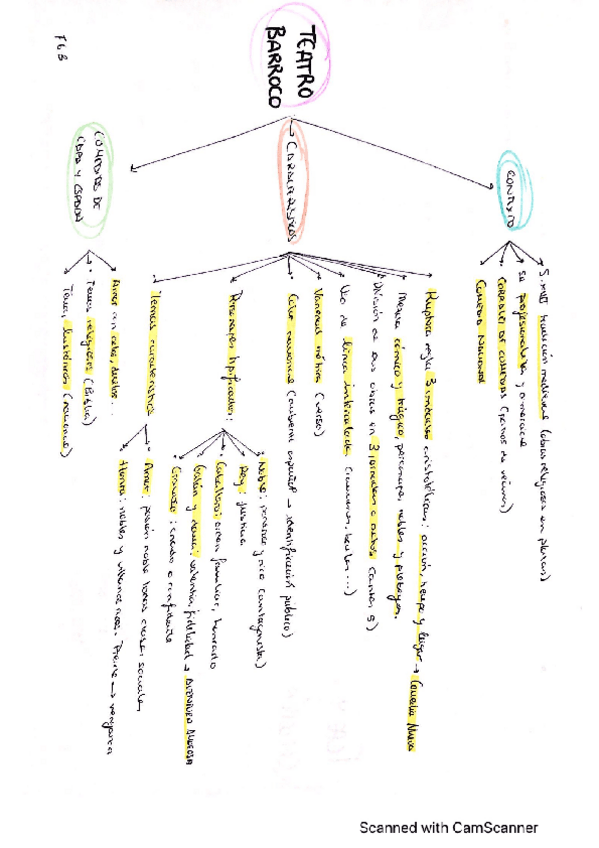 TEATRO
BARROCO
CONTEXTO
S.XVII tradición medieval (obras religiosas en plazas)
se profesionaliza y comercia
CORRALES DE COMEDIAS (patios de vecinos)
COMEDIA NACIONAL
CARACTERÍSTICAS
Ruptura regla 3 unidades aristotélicas: acción, tiempo y lugar → Comedia Nueva
Mezcla cómico y trágico, personajes nobles y plebeyos.
División de las obras en 3 jornadas o actos (antes 5)
Uso de lírica intercalada (canciones, bailes...)
Variedad métrica (verso)
Color nacional (ambiente español → identificación público)
Personajes tipificados:
Noble: poderoso y rico (antagonista)
Rey: justicia
Caballero: orden familiar, honrado
Galán y dama: valentía, fidelidad →
Gracioso: criado o confidente
Temas característicos
Amor: pasión noble todas clases sociales
Honra: nobles y villanos ricos. Pierde → venganza
COMEDIAS DE
CAPA Y ESPADA
Amor, celos, duelos...
Temas religiosos (Biblia)
Temas históricos (nacional)